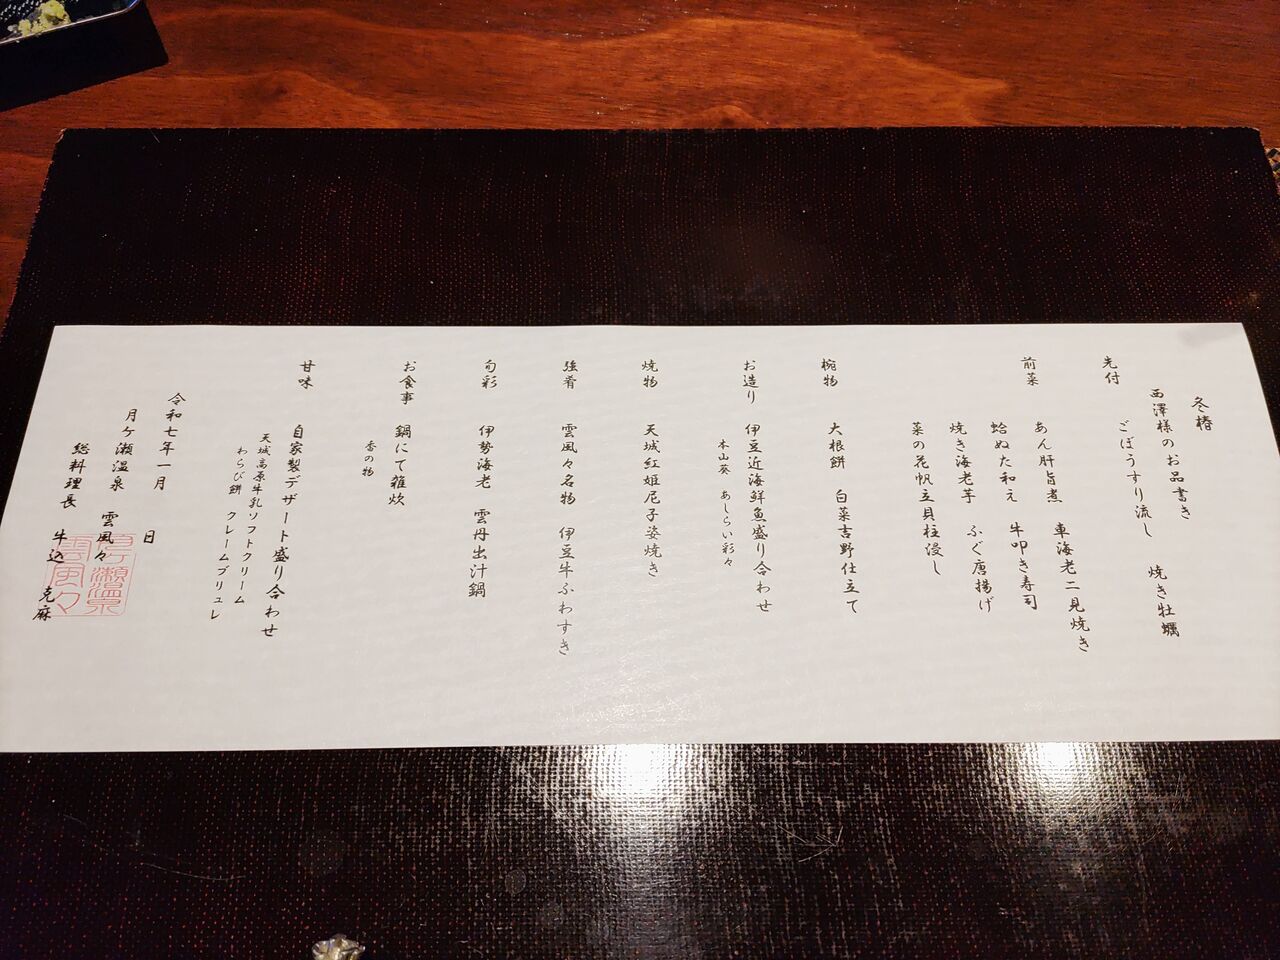 冬椿
西澤様のお品書き
先付 ごぼうすり流し 焼き牡蠣
前菜 あん肝旨煮 車海老二見焼き
蛤ぬた和え 牛叩き寿司
焼き海老芋 ふぐ唐揚げ
菜の花帆立貝柱浸し
椀物 大根餅 白菜吉野仕立て
お造り 伊豆近海鮮魚盛り合わせ
本山葵 あしらい彩々
焼物 天城紅姫尼子姿焼き
強肴 雲風々名物 伊豆牛ふわすき
旬彩 伊勢海老 雲丹出汁鍋
お食事 鍋にて雑炊
香の物
甘味 自家製デザート盛り合わせ
天城高原牛乳ソフトクリーム
わらび餅 クレームブリュレ
令和七年一月 日
月ケ瀬温泉 雲風々
総料理長 牛込 克麻
月ケ瀬温泉
雲風々